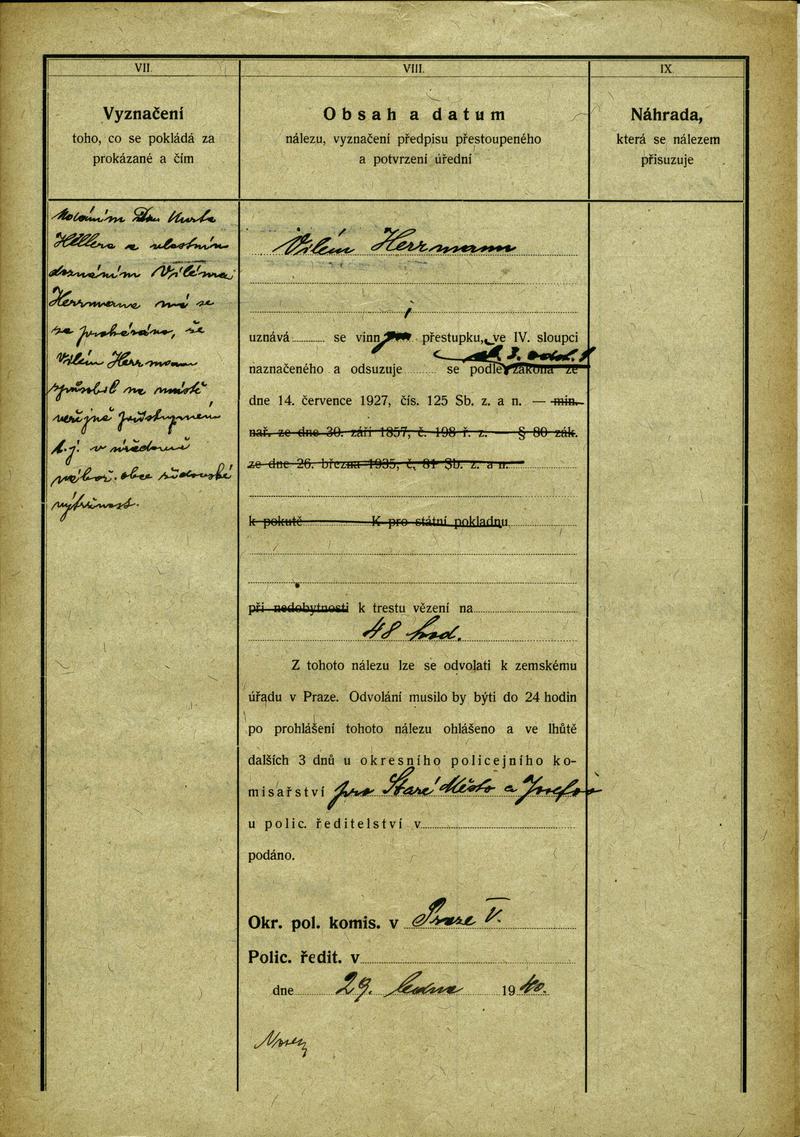 VII.
Vyznačení
toho, co se pokládá za
prokázané a čím
Kurta
Hellera a vlastním
doznáním Viléma
Herrmanna má se
za prokázáno, že
Vilém Herrmann
způsobil na místě
veřejně přístupném
t.j. v úřadovně
nábož. obce židovské
výtržnost.
VIII.
Obsah a datum
nálezu, vyznačení předpisu přestoupeného
a potvrzení úřední
Vilém Herrmann
uznává se vinným přestupku, ve IV. sloupci
čl. 3. odst. 1
naznačeného a odsuzuje se podle zákona ze
dne 14. července 1927, čís. 125 Sb. z. a n. — min.
nař. ze dne 30. září 1857, č. 198 ř. z. — § 80 zák.
ze dne 26. března 1935, č. 81 Sb. z. a n.
k pokutě K pro státní pokladnu
při nedobytnosti k trestu vězení na
48 hod.
Z tohoto nálezu lze se odvolati k zemskému
úřadu v Praze. Odvolání musilo by býti do 24 hodin
po prohlášení tohoto nálezu ohlášeno a ve lhůtě
dalších 3 dnů u okresního policejního ko-
misařství pro Staré Město a Josefov
u polic. ředitelství v
podáno.
Okr. pol. komis. v Praze V.
Polic. ředit. v
dne 29. ledna 1940.
IX.
Náhrada,
která se nálezem
přisuzuje